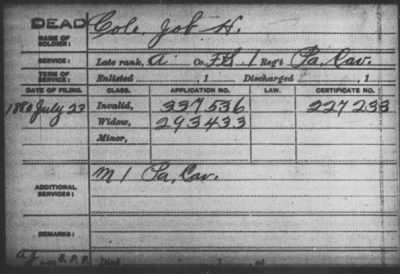 DEAD
NAME OF SOLDIER: Cole, Job H.
SERVICE: Late rank, Co. 1 Reg't Pa. Cav.
TERM OF SERVICE: Enlisted , 1 Discharged , 1
DATE OF FILING. CLASS. APPLICATION NO. LAW. CERTIFICATE NO.
1880 July 23 Invalid, 337536 227233
Widow, 293433
Minor,
ADDITIONAL SERVICES: M 1 Pa, Cav.
REMARKS: